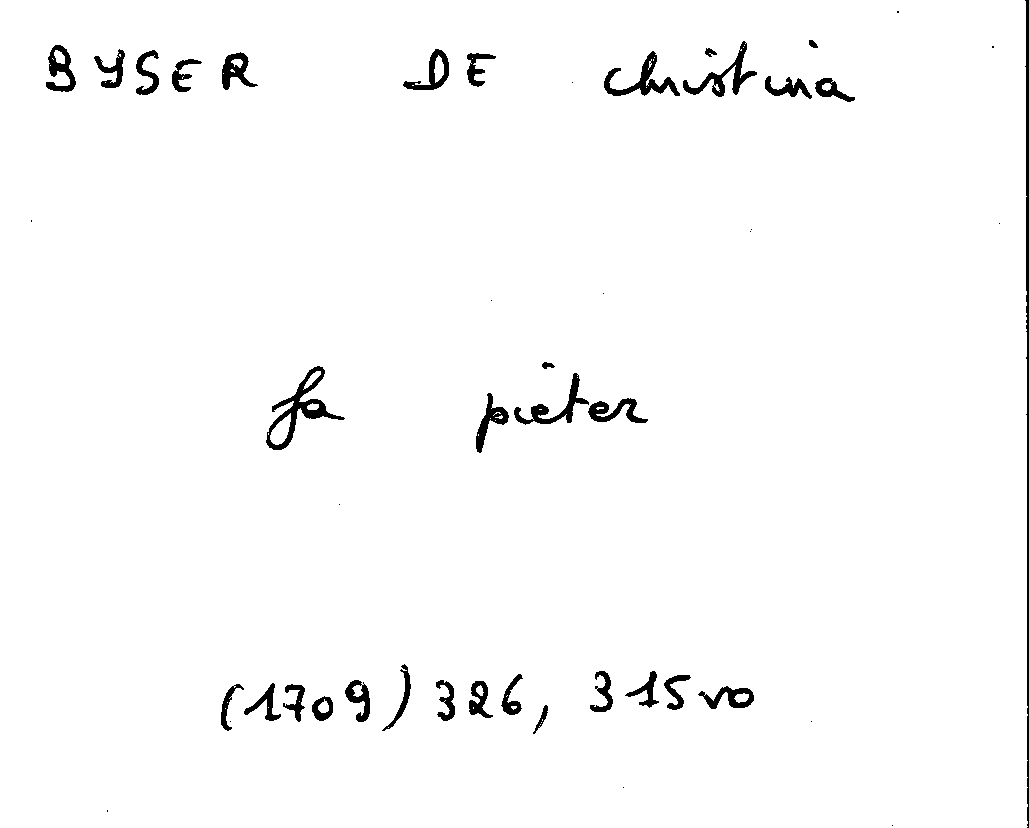 BYSER DE Christina
fa pieter
(1709) 326, 315vo